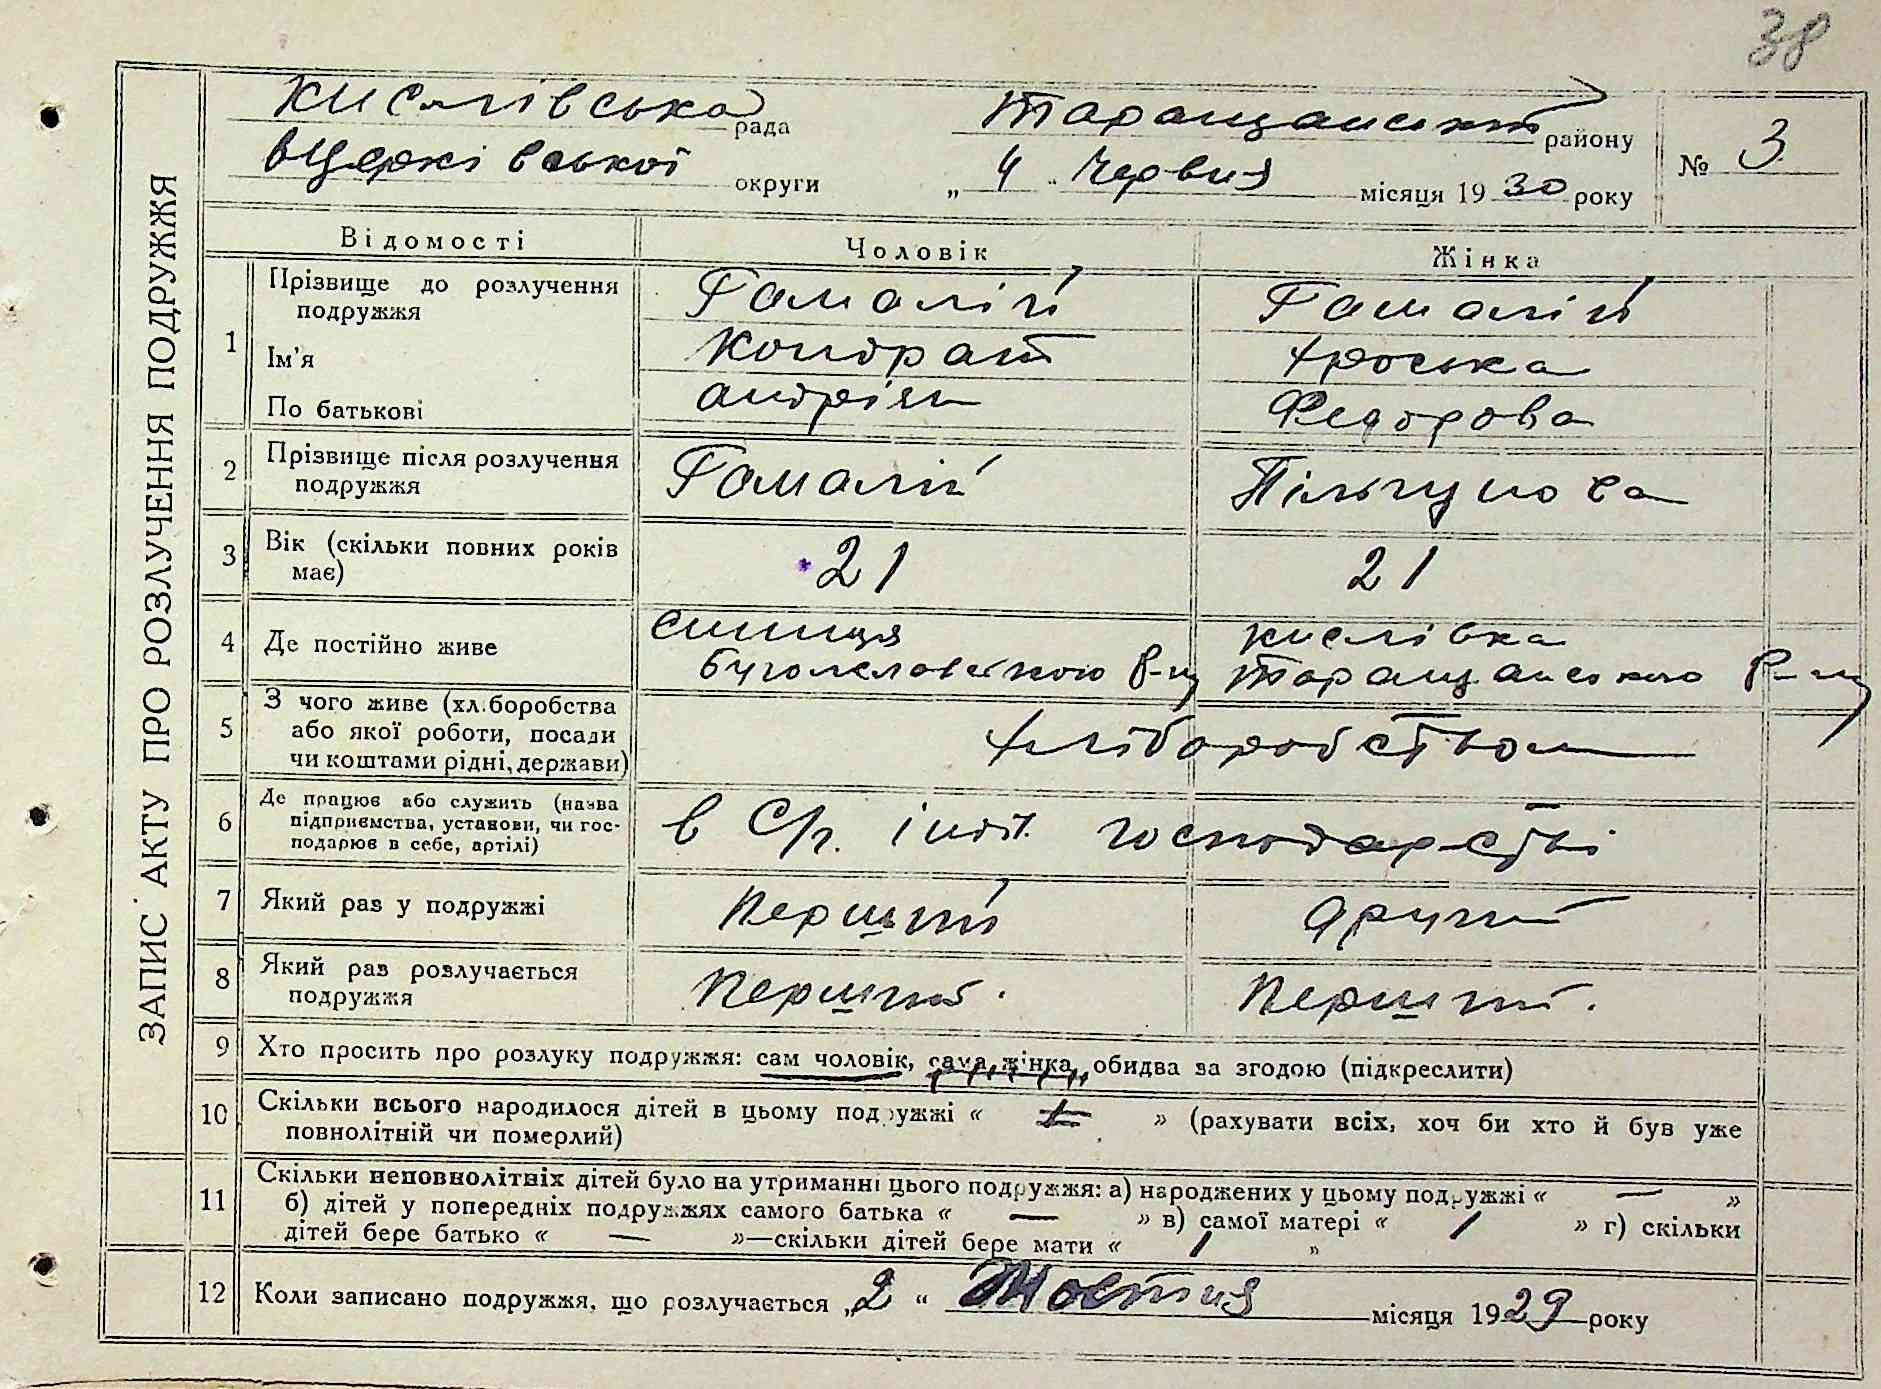 38
ЗАПИС АКТУ ПРО РОЗЛУЧЕННЯ ПОДРУЖЖЯ
Кислівська рада Таращанський району № 3
БЦерківської округи „ 4 " Червня місяця 1930 року
Відомості Чоловік Жінка
1 Прізвище до розлучення подружжя Гамалій Гамалій
Ім'я Кондрат Хроська
По батькові Андріян Федорова
2 Прізвище після розлучення подружжя Гамалій
3 Вік (скільки повних років має) 21 21
4 Де постійно живе Синиця Кислівка
Р-ну Таращанського Р-ну
5 З чого живе (хл.боробства або якої роботи, посади чи коштами рідні, держави) Хліборобством
6 Де працює або служить (назва підприємства, установи, чи господарює в себе, артілі) в С/г. інд. господарстві
7 Який раз у подружжі Перший Другий
8 Який раз розлучається подружжя Перший. Перший.
9 Хто просить про розлуку подружжя: сам чоловік, сама жінка, обидва за згодою (підкреслити)
10 Скільки всього народилося дітей в цьому подружжі « » (рахувати всіх, хоч би хто й був уже
повнолітній чи померлий)
11 Скільки неповнолітніх дітей було на утриманні цього подружжя: а) народжених у цьому подружжі « — »
б) дітей у попередніх подружжях самого батька « — » в) самої матері « 1 » г) скільки
дітей бере батько « — »—скільки дітей бере мати « 1 »
12 Коли записано подружжя, що розлучається „2 “ Жовтня місяця 1929 року